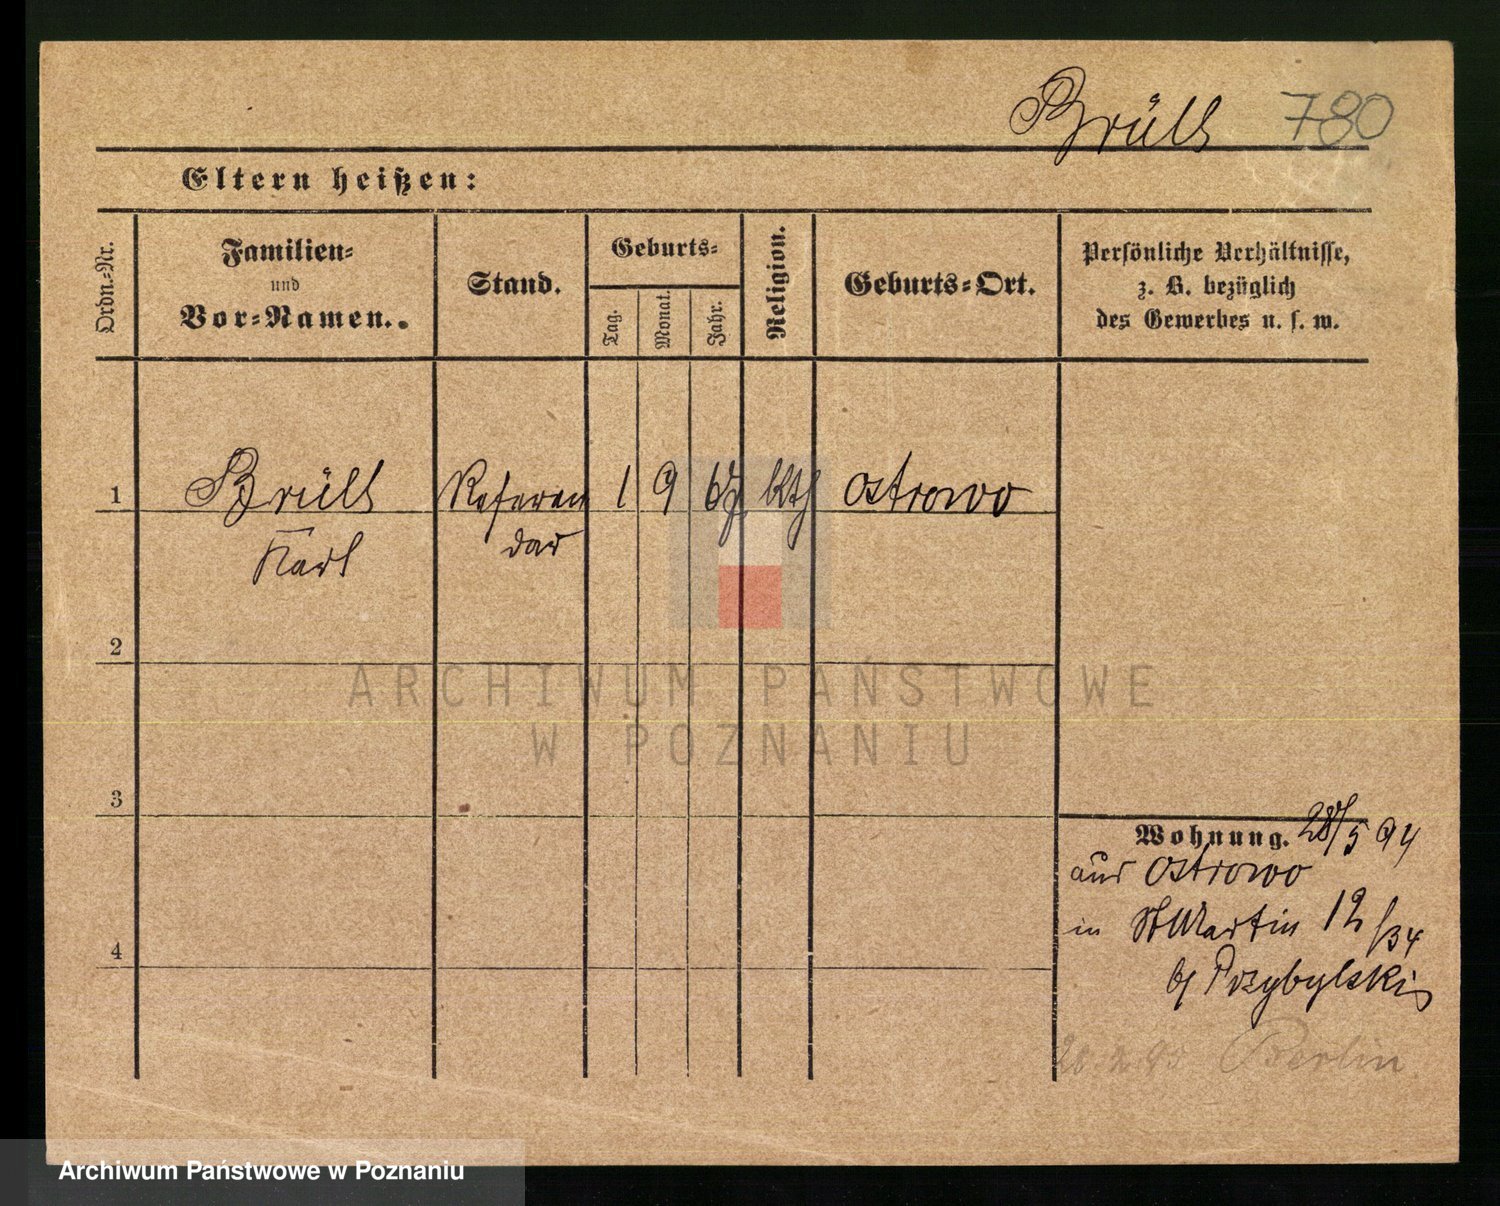 Brüll 780
Eltern heißen:
Ordn.=Nr.
Familien=
und
Vor=Namen.
Stand.
Geburts=
Tag.
Monat.
Jahr.
Religion.
Geburts=Ort.
Persönliche Verhältnisse,
z. B. bezüglich
des Gewerbes u. s. w.
1 Brüll Referen 1 9 kth Ostrowo
Karl dar
2
ARCHIWUM PAŃSTWOWE
W POZNANIU
3
Wohnung. 28/5 94
aus Ostrowo
in St Martin 12 /34
b/ Przybylski
4
Berlin
Archiwum Państwowe w Poznaniu